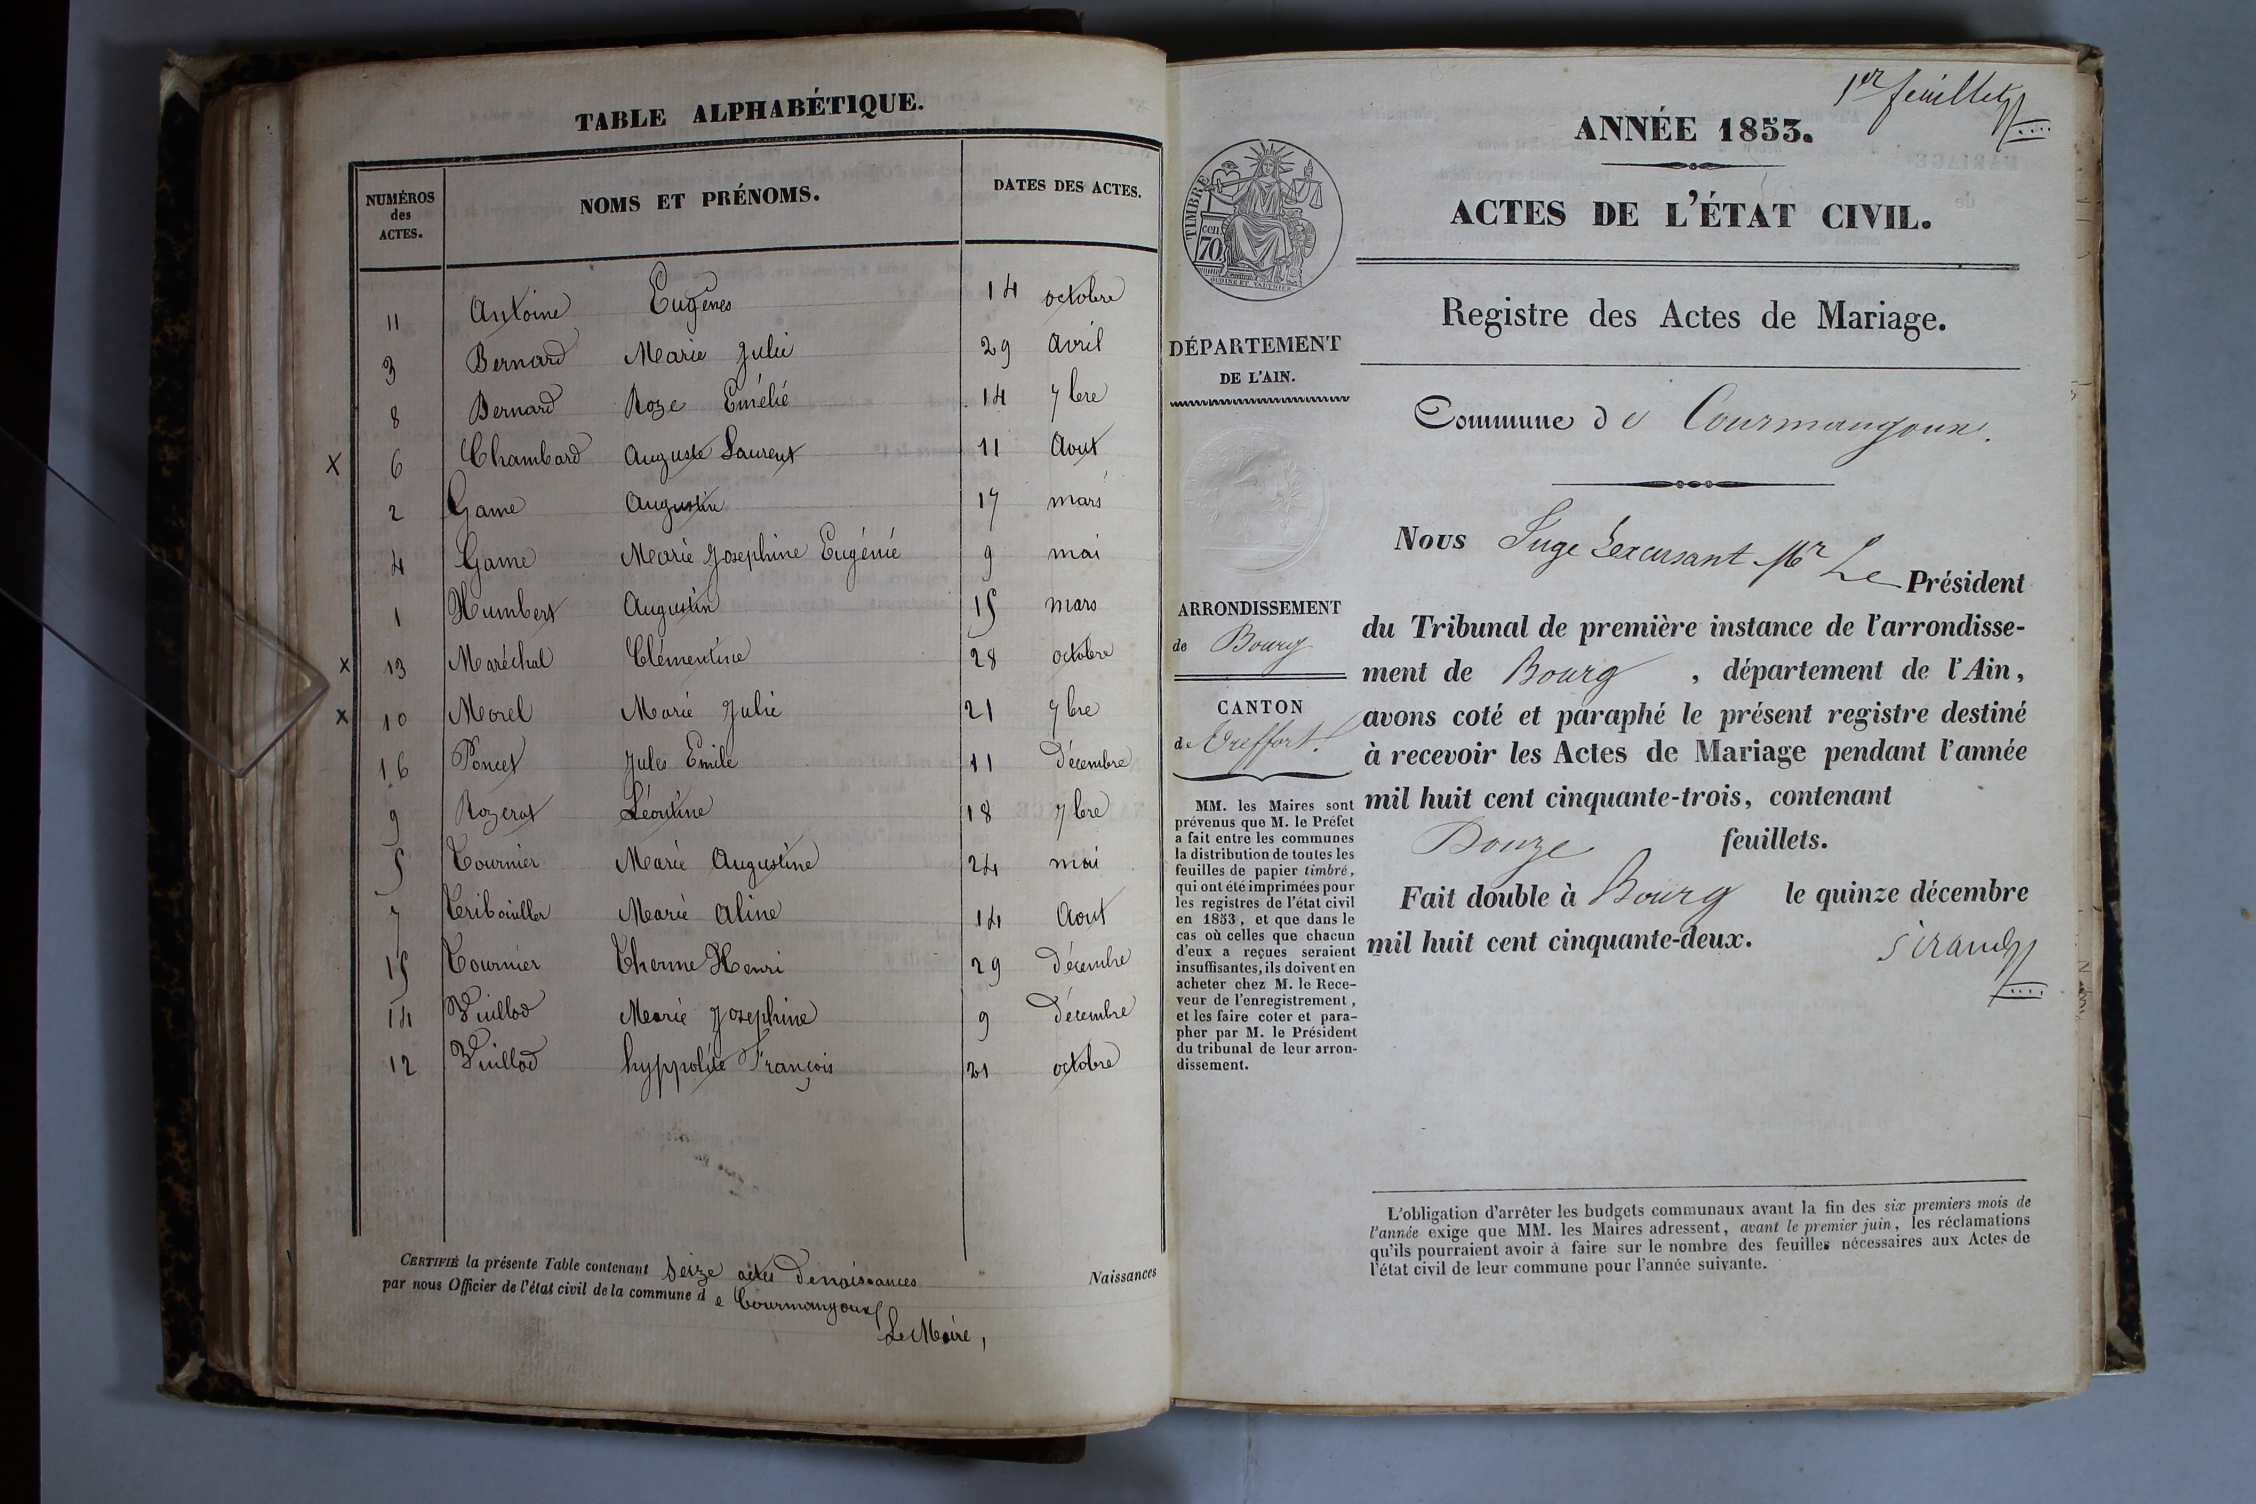 TABLE ALPHABÉTIQUE.
NUMÉROS des ACTES. NOMS ET PRÉNOMS. DATES DES ACTES.
11 Antoine Eugènes 14 octobre
3 Bernard Marie Julie 29 avril
8 Bernard Roze Emélié 14 7bre
X 6 Chambard Auguste Laurent 11 Aout
2 Game Augustin 17 mars
4 Game Marie Josephine Eugénie 9 mai
1 Humbert Augustin 15 mars
X 13 Maréchal Clémentine 28 octobre
X 10 Morel Marie Julie 21 7bre
16 Poncet Jules Emile 11 Décembre
9 Rozerat Léontine 18 7bre
5 Tournier Marie Augustine 24 mai
7 Teribouiller Marie Aline 14 Aout
15 Tournier Henri 29 Décembre
14 Vuillod Marie Josephine 9 Décembre
12 Vuillod hyppolite François 21 octobre
CERTIFIÉ la présente Table contenant seize actes de naissances
par nous Officier de l'état civil de la commune de Courmangoux
Le Maire,
Naissances
1er feuillet
ANNÉE 1853.
ACTES DE L'ÉTAT CIVIL.
TIMBRE
cen
70
OUDINE ET VAUTHIER
Registre des Actes de Mariage.
DÉPARTEMENT
DE L'AIN.
Commune de Courmangoux.
Nous Juge Mr Le Président
du Tribunal de première instance de l'arrondisse-
ment de Bourg, département de l'Ain,
avons coté et paraphé le présent registre destiné
à recevoir les Actes de Mariage pendant l'année
mil huit cent cinquante-trois, contenant
Douze feuillets.
Fait double à Bourg le quinze décembre
mil huit cent cinquante-deux.
Sirand
ARRONDISSEMENT
de Bourg
CANTON
de Treffort.
MM. les Maires sont
prévenus que M. le Préfet
a fait entre les communes
la distribution de toutes les
feuilles de papier timbré,
qui ont été imprimées pour
les registres de l'état civil
en 1853, et que dans le
cas où celles que chacun
d'eux a reçues seraient
insuffisantes, ils doivent en
acheter chez M. le Rece-
veur de l'enregistrement,
et les faire coter et para-
pher par M. le Président
du tribunal de leur arron-
dissement.
L'obligation d'arrêter les budgets communaux avant la fin des six premiers mois de
l'année exige que MM. les Maires adressent, avant le premier juin, les réclamations
qu'ils pourraient avoir à faire sur le nombre des feuilles nécessaires aux Actes de
l'état civil de leur commune pour l'année suivante.